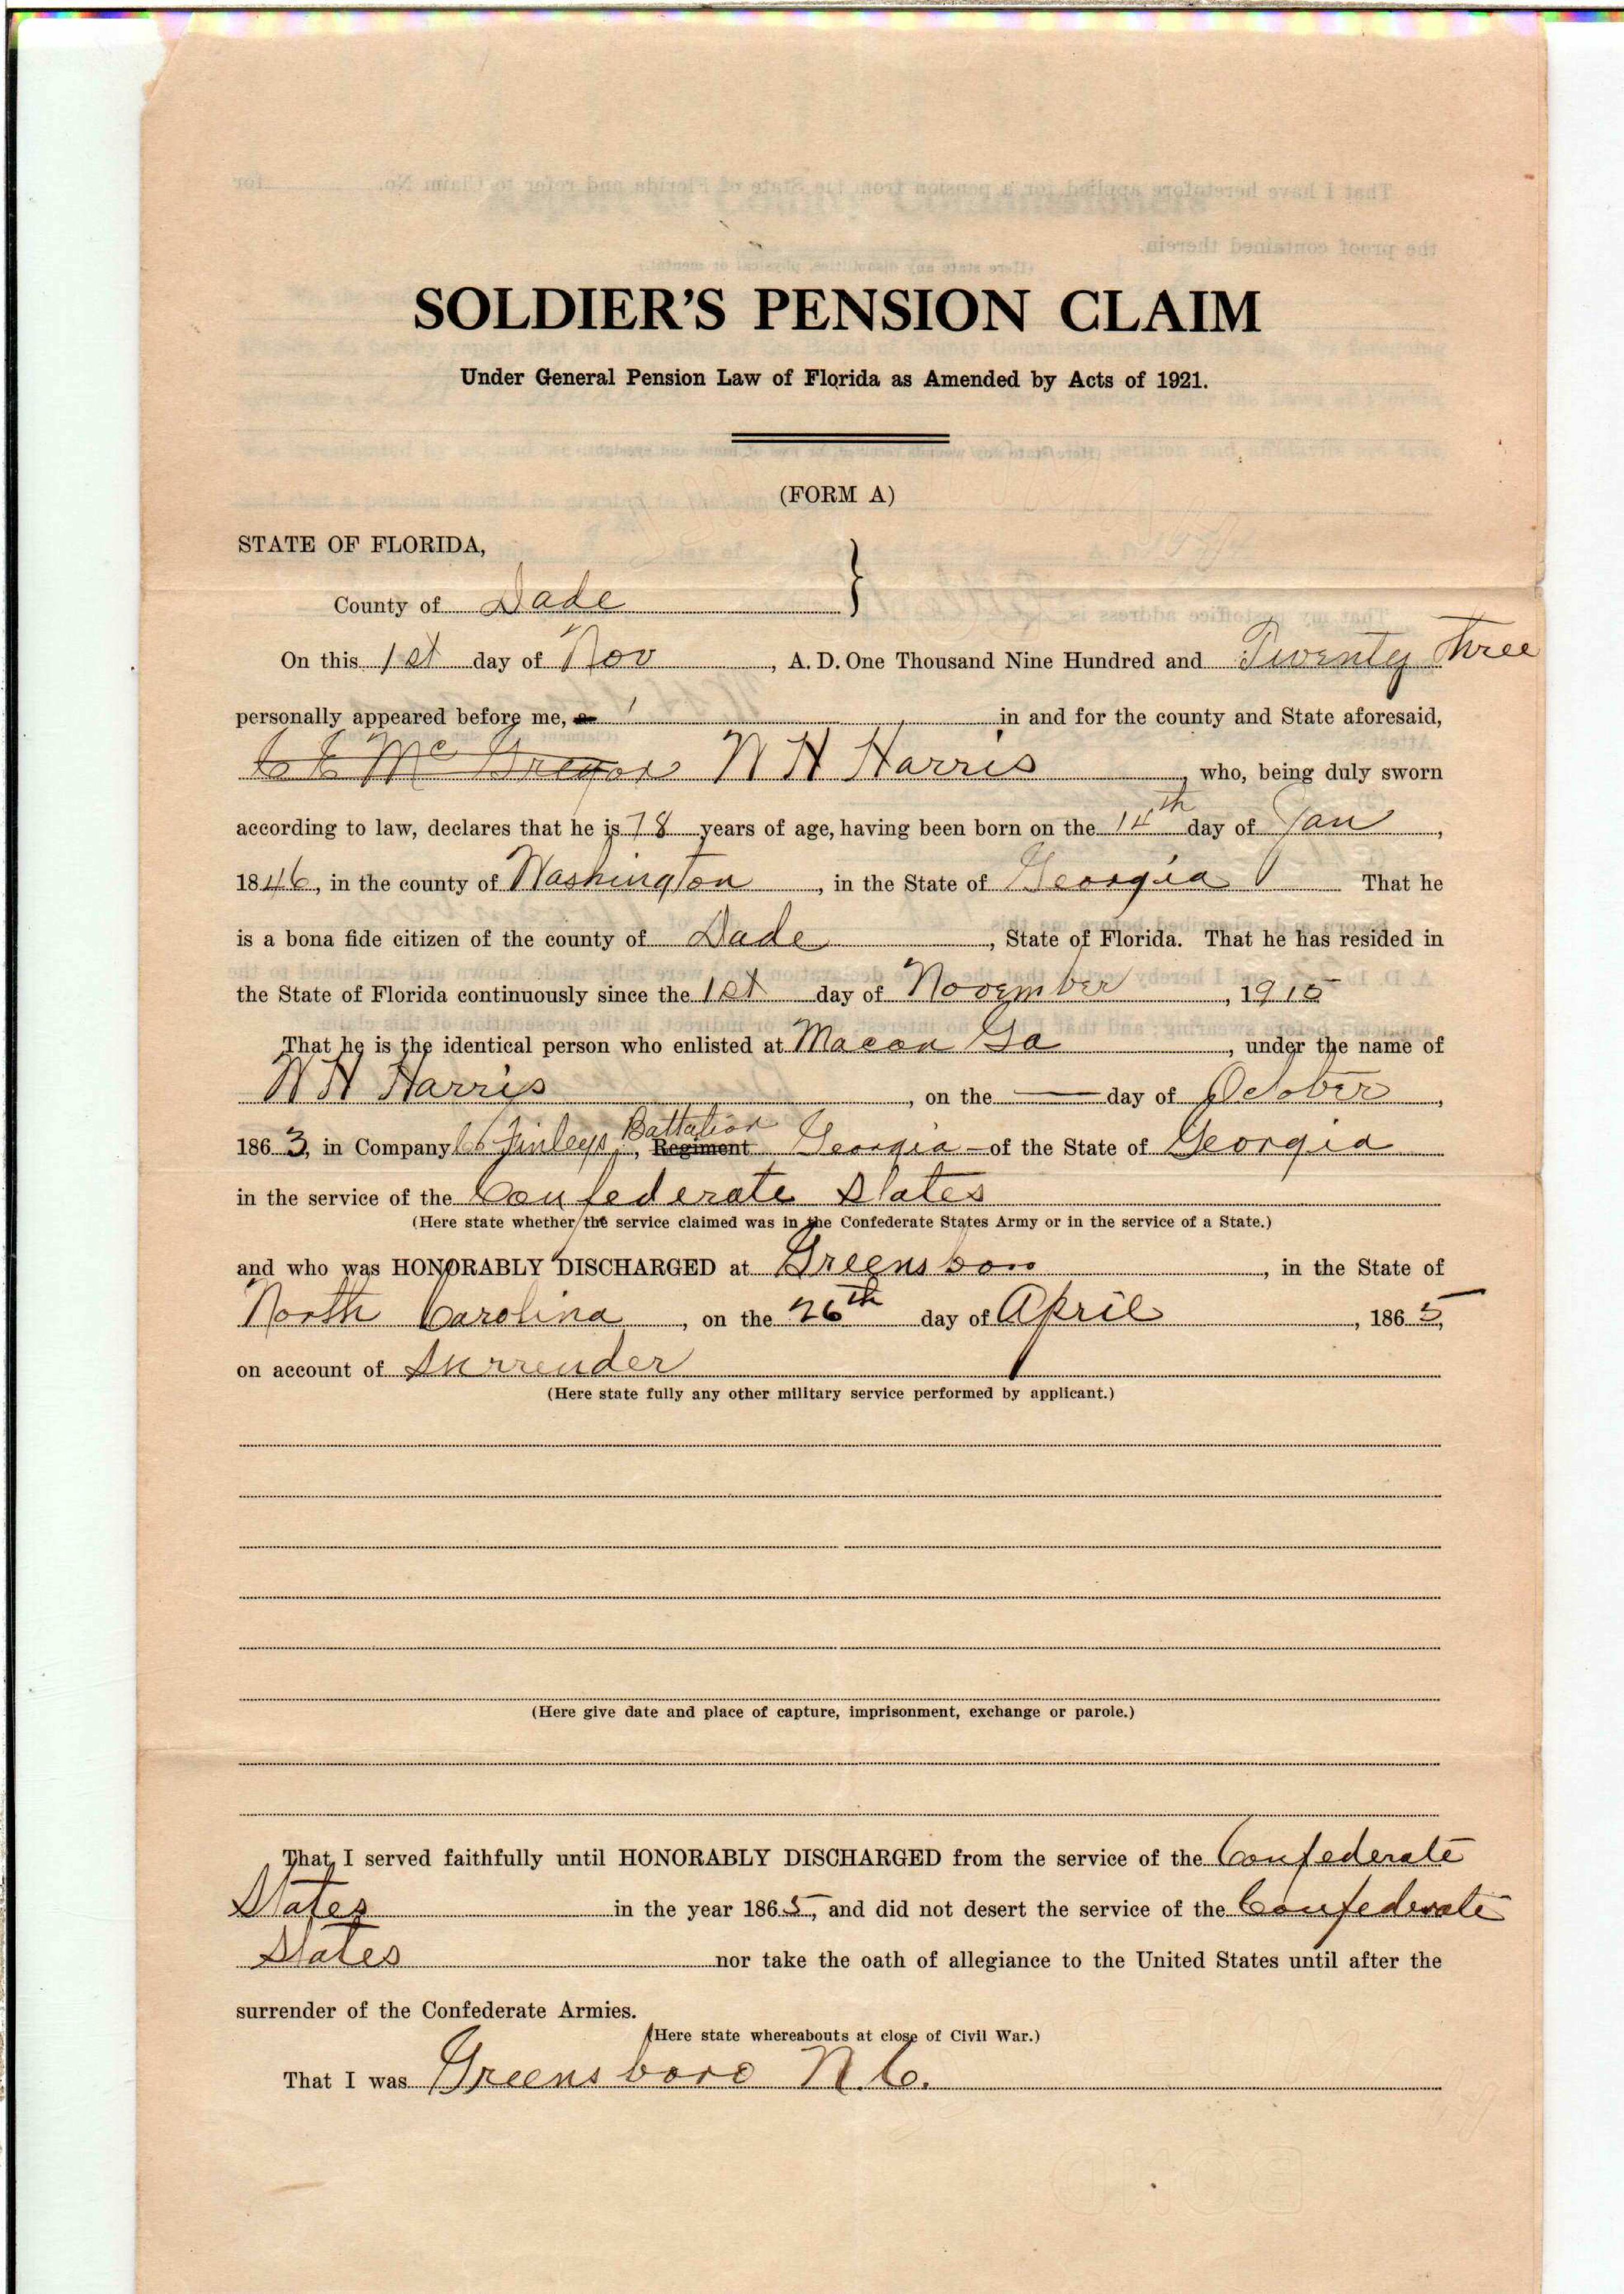 SOLDIER'S PENSION CLAIM
Under General Pension Law of Florida as Amended by Acts of 1921.
(FORM A)
STATE OF FLORIDA,
County of Dade }
On this 1st day of Nov, A. D. One Thousand Nine Hundred and Twenty Three
personally appeared before me, a in and for the county and State aforesaid,
C E McGregor W H Harris, who, being duly sworn
according to law, declares that he is 78 years of age, having been born on the 14th day of Jan,
1846, in the county of Washington, in the State of Georgia That he
is a bona fide citizen of the county of Dade, State of Florida. That he has resided in
the State of Florida continuously since the 1st day of November, 1915
That he is the identical person who enlisted at Macon Ga, under the name of
W H Harris, on the — day of October,
1863, in Company Finleys, Regiment Battalion Georgia - of the State of Georgia
in the service of the Confederate States
(Here state whether the service claimed was in the Confederate States Army or in the service of a State.)
and who was HONORABLY DISCHARGED at Greensboro, in the State of
North Carolina, on the 26th day of April, 1865,
on account of Surrender
(Here state fully any other military service performed by applicant.)
(Here give date and place of capture, imprisonment, exchange or parole.)
That I served faithfully until HONORABLY DISCHARGED from the service of the Confederate
States in the year 1865, and did not desert the service of the Confederate
States nor take the oath of allegiance to the United States until after the
surrender of the Confederate Armies.
(Here state whereabouts at close of Civil War.)
That I was Greensboro N. C.